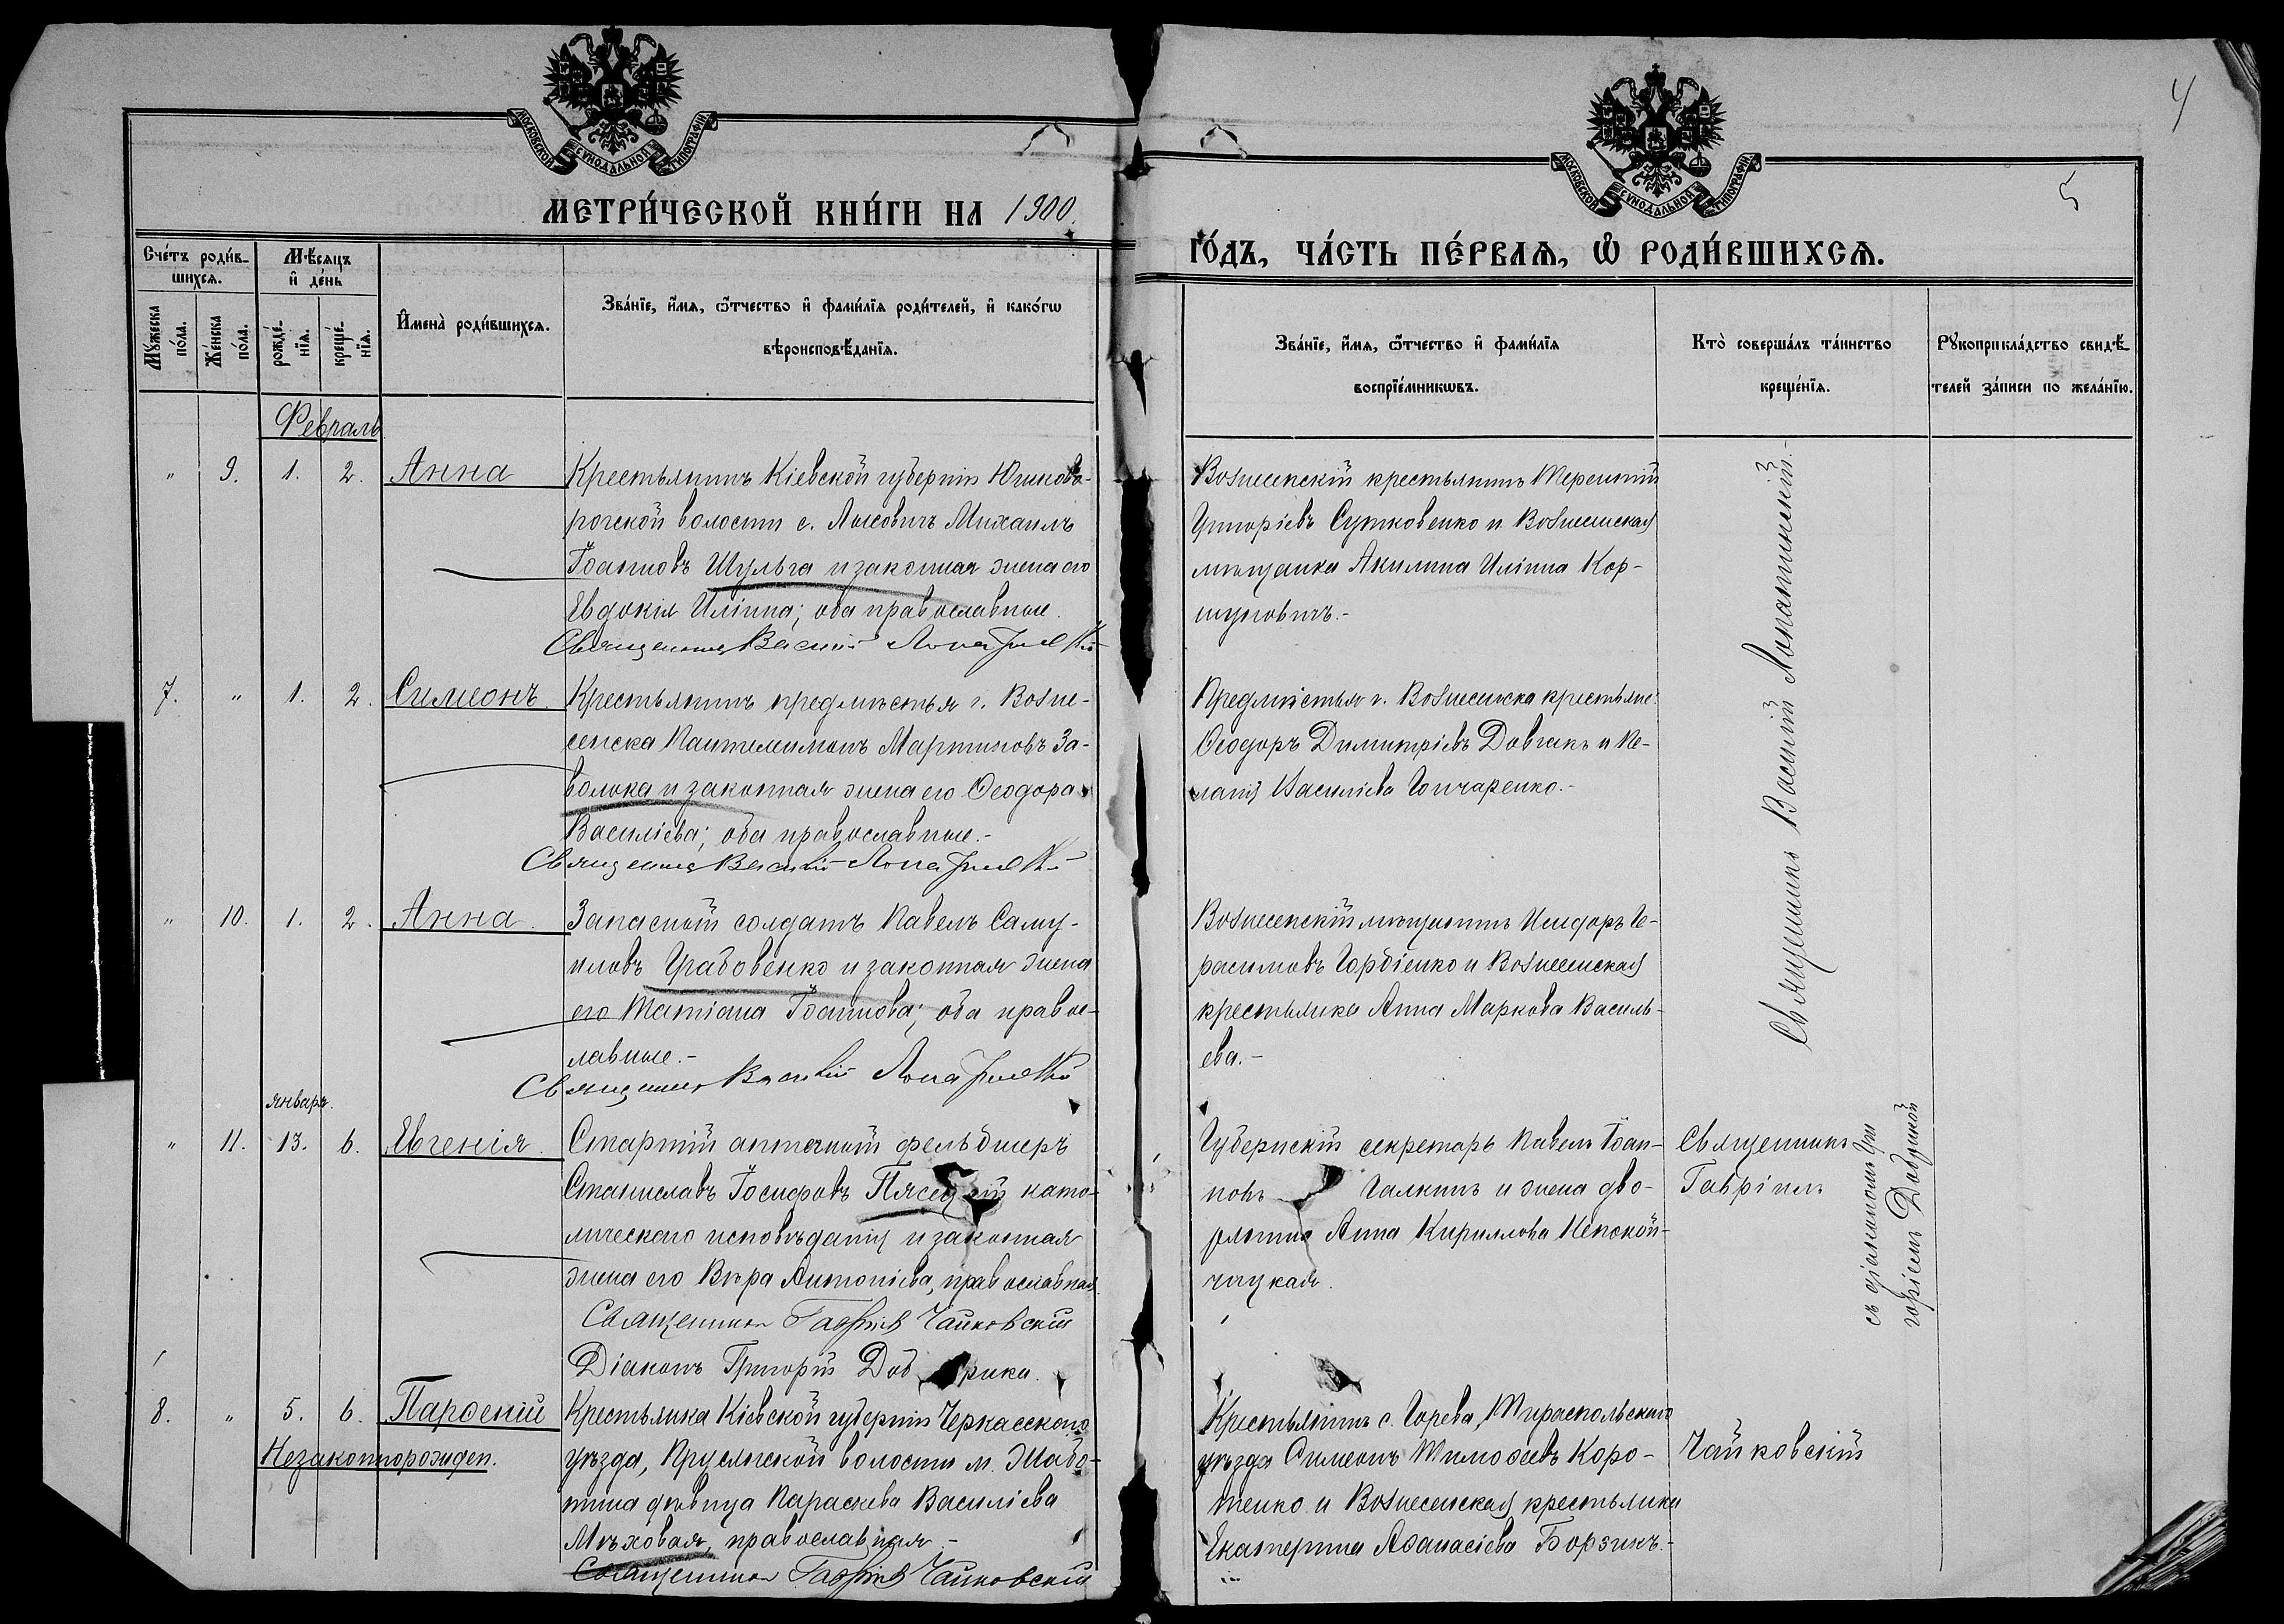 4
5
МОСКОВСКОЙ СѴНОДАЛЬНОЙ ТИПОГРАФІИ
МОСКОВСКОЙ СѴНОДАЛЬНОЙ ТИПОГРАФІИ
МЕТРИ́ЧЕСКОЙ КНИ́ГИ НА 1900.
ГО́ДЪ, ЧА́СТЬ ПЕ́РВАѦ, Ѡ҆ РОДИ́ВШИХСѦ.
Сче́тъ роди́в-
шихсѧ.
Мѣ́сѧцъ
и҆ де́нь
Мꙋ́жеска
по́ла.
Же́нска
по́ла.
рожде́-
нїѧ.
креще́-
нїѧ.
И҆мена̀ роди́вшихсѧ.
Зва́нїе, и҆́мѧ, ѻ҆́тчество и҆ фами́лїѧ роди́телей, и҆ како́гѡ
вѣроисповѣ́данїѧ.
Зва́нїе, и҆́мѧ, ѻ҆́тчество и҆ фами́лїѧ
воспрїе́мникѡвъ.
Кто̀ соверша́лъ та́инство
креще́нїѧ.
Рꙋкоприкла́дство свидѣ́-
телей за́писи по жела́нїю.
Февраль
" 9. 1. 2. Анна
Крестьянинъ Кіевской губерніи Юшково-
рогской волости с. Лисовичъ Михаилъ
Іоанновъ Шульга и законная жена его
Евдокія Иліина; оба православные.
Священникъ Василій Лопатинскій
Вознесенскій крестьянинъ Терентій
Григоріевъ Сутковенко и Вознесенская
мѣщанка Акилина Иліина Кор-
шуновичъ.-
7. " 1. 2. Симеонъ.
Крестьянинъ предмѣстья г. Возне-
сенска Пантелимонъ Мартиновъ За-
волока и законная жена его Ѳеодора
Василіева; оба православные.-
Священникъ Василій Лопатинскій
Предмѣстья г. Вознесенска крестьяне:
Ѳеодоръ Димитріевъ Довгань и Пе-
лагія Василіева Гончаренко.-
" 10. 1. 2. Анна.
Запасной солдатъ Павелъ Саму-
иловъ Грабовенко и законная жена
его Татіана Іоаннова; оба правос-
лавные.-
Священникъ Василій Лопатинскій
Вознесенскій мѣщанинъ Исидоръ Ге-
расимовъ Горбіенко и Вознесенская
крестьянка Анна Маркова Василь-
ева.-
Священникъ Василій Лопатинскій.-
январь.
" 11. 13. 6. Евгенія.
Старшій аптечный фельдшеръ
Станиславъ Іосифовъ като-
лическаго исповѣданія и законная
жена его Вѣра Антоніева, православная.
Священникъ Гавріилъ Чайковскій
Діаконъ Григорій
Губернскій секретарь Павелъ Іоан-
новъ Галкинъ и жена дво-
рянина Анна Кириллова
Священникъ
Гавріилъ
съ діакономъ Гри
горіемъ
8. " 5. 6. Парѳеній
Незаконнорожден.
Крестьянка Кіевской губерніи Черкасскаго
уѣзда, Прусянской волости м. Жабо-
тина дѣвица Параскева Василіева
Мѣховая, православная.-
Священникъ Гавріилъ Чайковскій
Крестьянинъ с. Горева, Тираспольскаго
уѣзда Симеонъ Тимоѳеевъ Коро-
тенко и Вознесенская крестьянка
Екатерина Аѳанасіева Борзикъ.-
Чайковскій